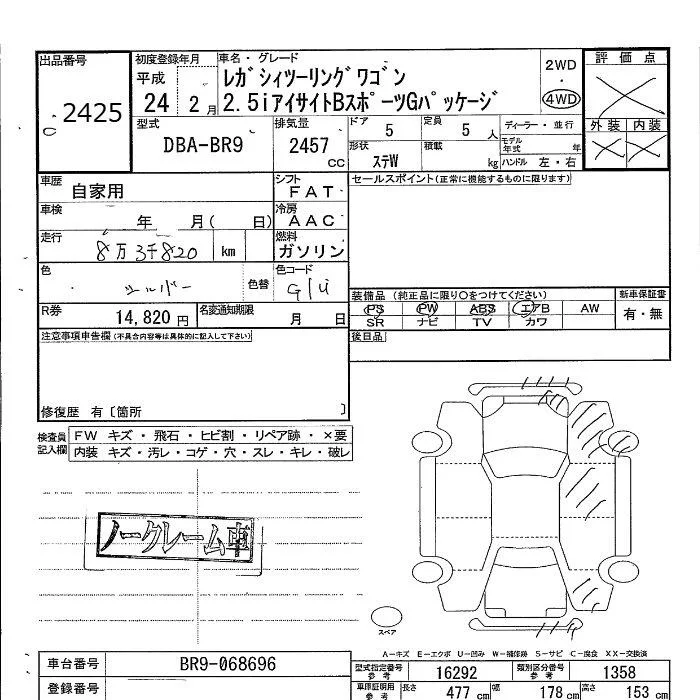 出品番号
2425
初度登録年月
平成
24 2月
車名・グレード
レガシィツーリングワゴン
2.5iアイサイトBスポーツGパッケージ
2WD
・
4WD
評価点
外装 内装
型式
DBA-BR9
排気量
2457
CC
ドア 5
形状 ステW
定員 5人
積載 kg
ディーラー・並行
モデル年式 年
ハンドル 左・右
車歴 自家用
シフト FAT
車検 年 月( 日)
冷房 AAC
走行 8万3千820 km
燃料 ガソリン
色 シルバー 色替
色コード G1U
R券 14,820円
名変通知期限 月 日
セールスポイント(正常に機能するものに限ります)
装備品 (純正品に限り○をつけてください)
PS PW ABS エアB AW
SR ナビ TV カワ
新車保証書
有・無
後日品
注意事項申告欄(不具合内容等は具体的に記入して下さい)
修復歴 有〔箇所 〕
検査員記入欄
FW キズ・飛石・ヒビ割・リペア跡・×要
内装 キズ・汚レ・コゲ・穴・スレ・キレ・破レ
ノークレーム車
スペア
A-キズ E-エクボ U-凹み W-補修跡 S-サビ C-腐食 XX-交換済
車台番号 BR9-068696
登録番号
型式指定番号 参考 16292
類別区分番号 参考 1358
車庫証明用 参考 長さ 477 cm 幅 178 cm 高さ 153 cm